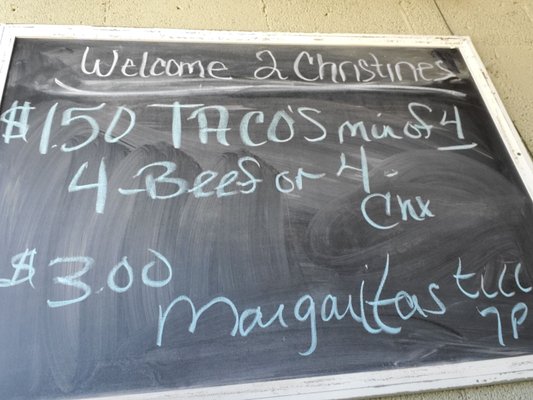 Welcome 2 Christines
$1.50 TACO'S min of 4
4-Beef or 4-
Chx
$3.00
Margaritas till
7P